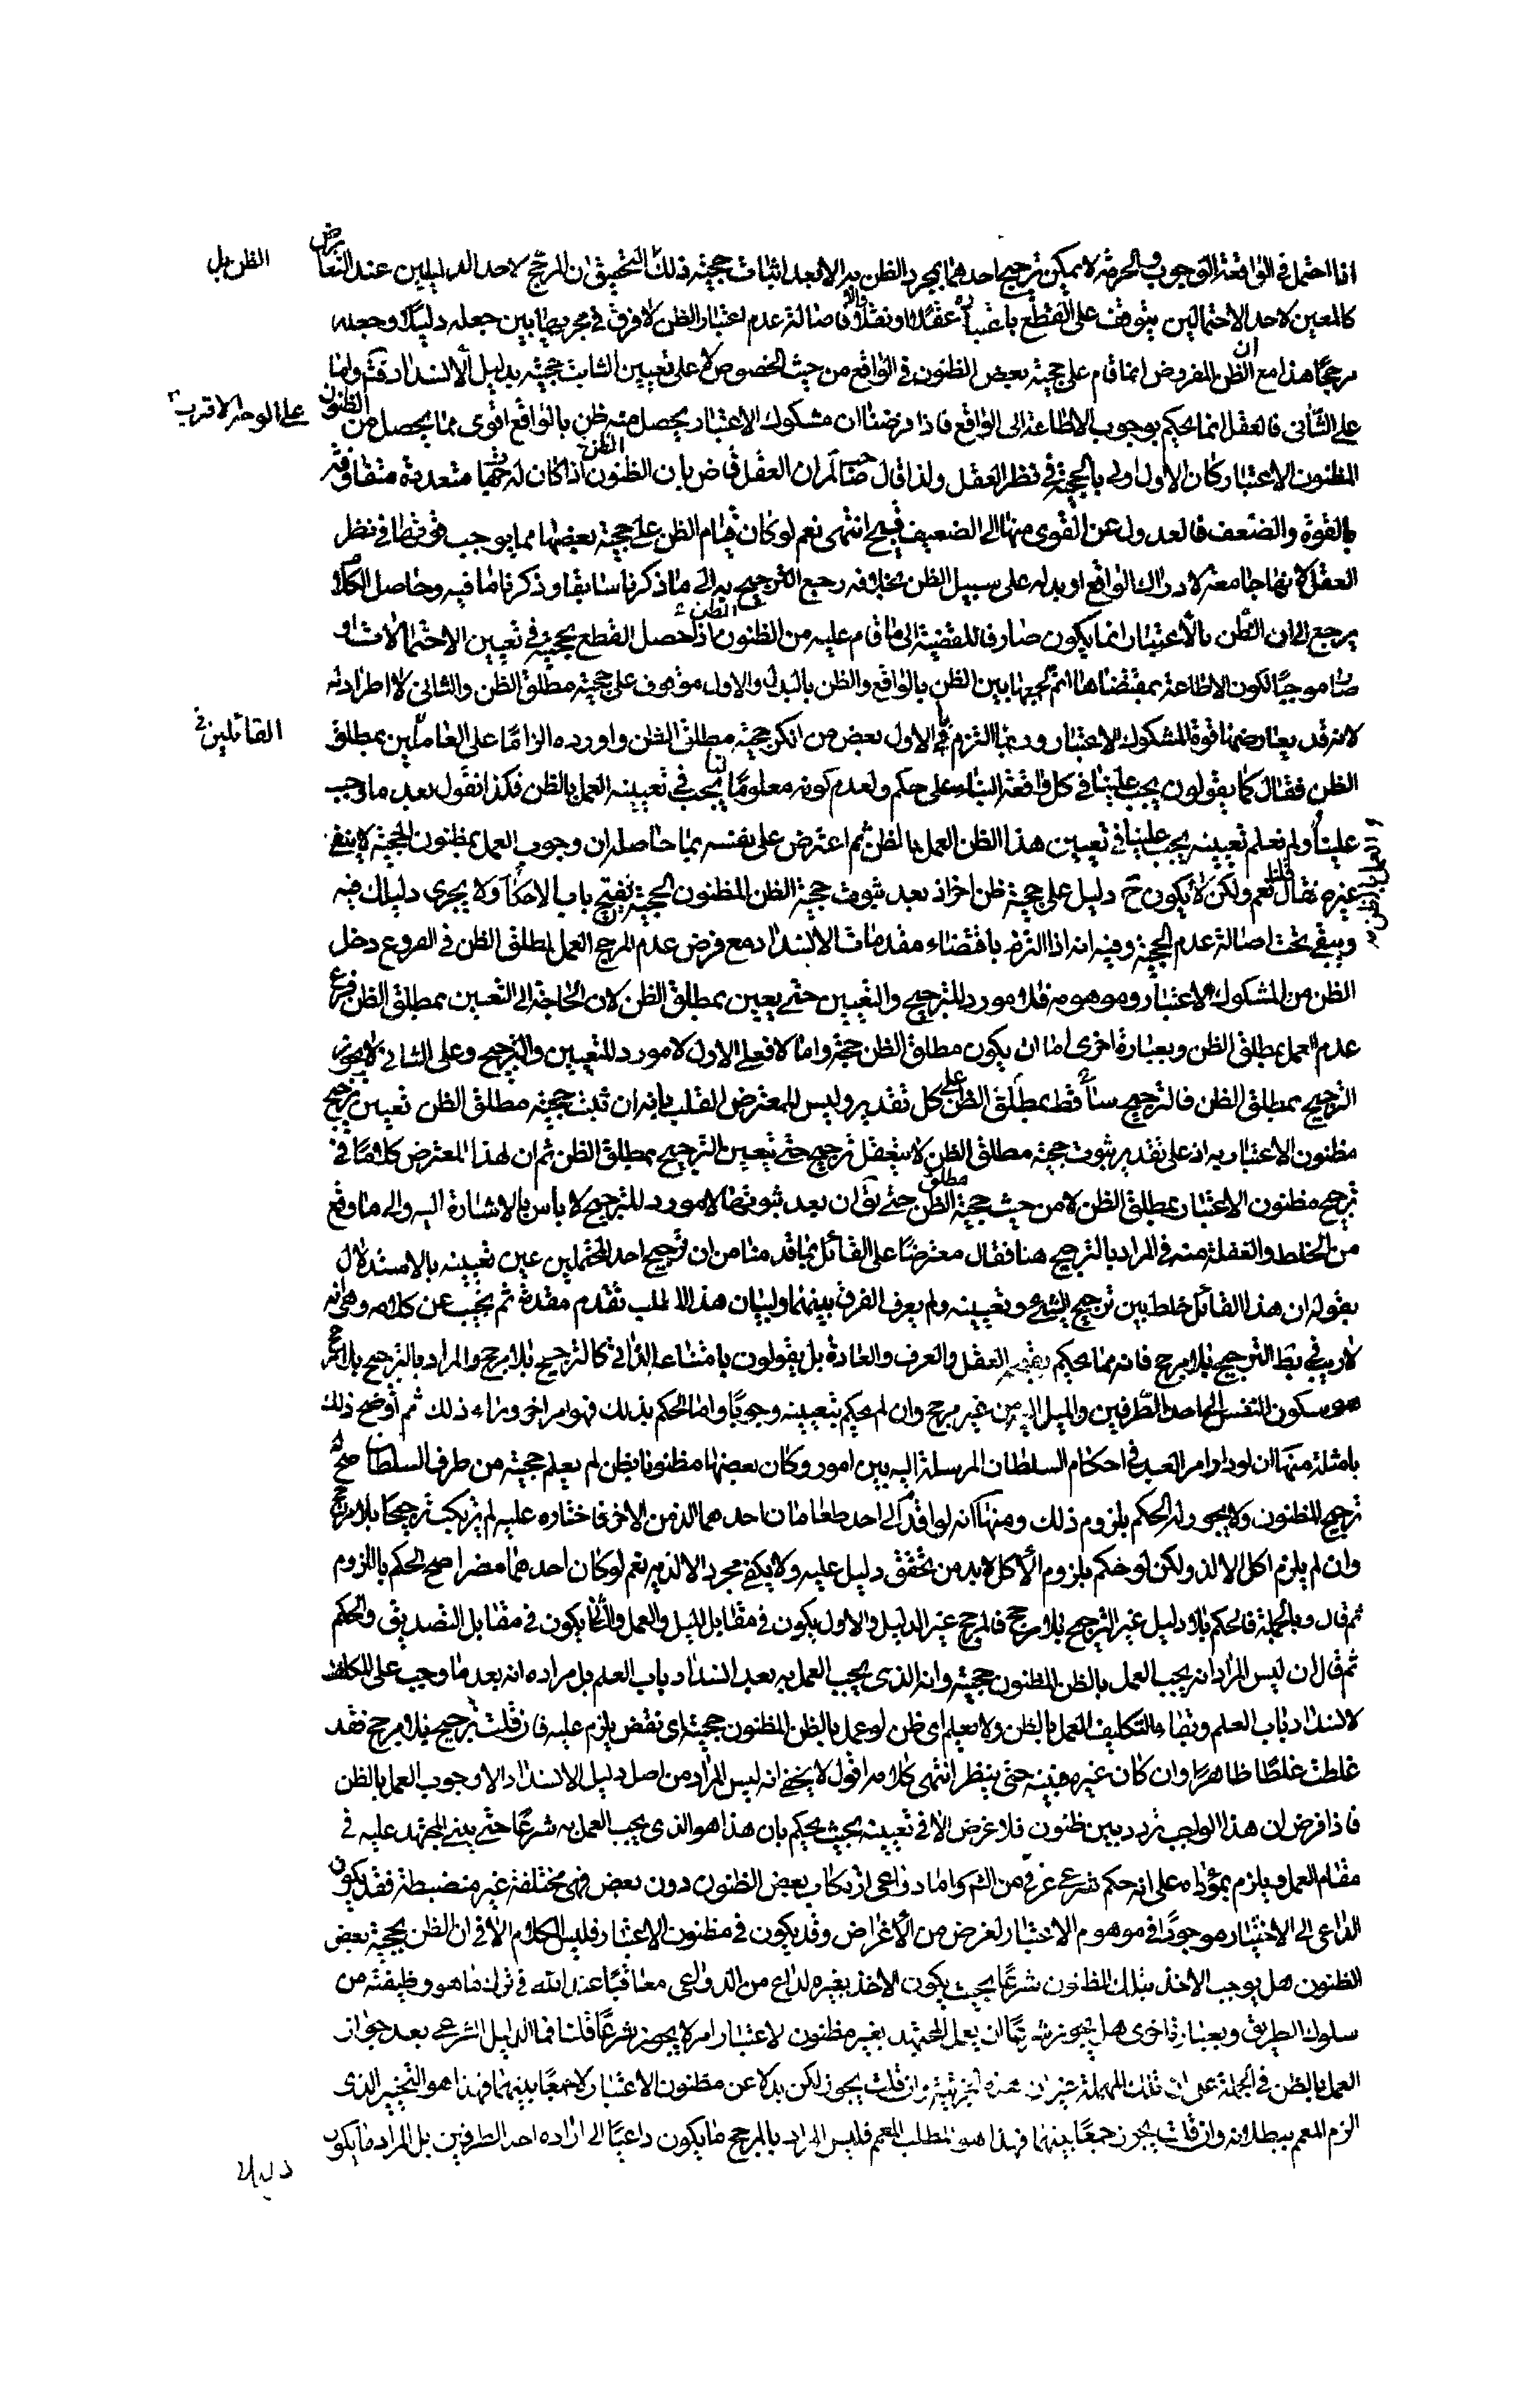 اذا احتمل في الواقعة الوجوب والحرمة لا يمكن ترجيح احدهما بمجرد الظن به الا بعد اثبات حجيته فذلك التحقيق ان المرجح لاحد الدليلين عند التعارض
الظن بل
كالمعين لاحد الاحتمالين يتوقف على القطع باعتباره عقلا او نقلا والا فاصالة عدم اعتبار الظن لا فرق في مجريها بين جعله دليلا وجعله
مرجحا هذا مع ان الظن المفروض انما قام على حجية بعض الظنون في الواقع من حيث الخصوص لا على تعيين الثابت حجيته بدليل الانسداد فتدبر واما
على الثاني فالعقل انما يحكم بوجوب الاطاعة الى الواقع فاذا فرضنا ان مشكوك الاعتبار يحصل منه ظن بالواقع اقوى مما يحصل من الظنون
على الوجه الاقرب
المظنون الاعتبار كان الاول اولى بالحجية في نظر العقل ولذا قال صا لم ان العقل قاض بان الظنون اذا كان له جهات متعددة متفاوتة
بالقوة والضعف فالعدول عن القوى منها الى الضعيف قبيح انتهى نعم لو كان قيام الظن على حجية بعضها مما يوجب قوتها في نظر
العقل لانها جامعة لادراك الواقع او بدله على سبيل الظن بخلافه رجع الترجيح به الى ما ذكرنا سابقا وذكرنا ما فيه وحاصل الكلام
يرجع الى ان الظن بالاعتبار انما يكون صارفا للقضية الى ما قام عليه من الظنون اذا حصل القطع بحجيته في تعيين الاحتمالات او
صار موجبا لكون الاطاعة بمقتضاها اتم لجمعها بين الظن بالواقع والظن بالبدل والاول موقوف على حجية مطلق الظن والثاني لا اطراد له
لانه قد يعارضها قوة المشكوك الاعتبار وربما التزم بالاول بعض من انكر حجية مطلق الظن واورده الزاما على القائلين بمطلق
القائلين
الظن فقال كما يقولون يجب علينا في كل واقعة البناء على حكم ولعدم كونه معلوما لنا يجب في تعيينه العمل بالظن فكذا نقول بعد ما وجب
علينا ولم نعلم تعيينه يجب علينا في تعيين هذا الظن العمل بالظن ثم اعترض على نفسه بما حاصله ان وجوب العمل بمظنون الحجية لا ينفي
غيره فقال قلنا نعم ولكن لا يكون ح دليل على حجية ظن اخر اذ بعد ثبوت حجية الظن المظنون الحجية ينفتح باب الاحكام ولا يجري دليلك فيه
ويبقى تحت اصالة عدم الحجية وفيه انه اذا التزم باقتضاء مقدمات الانسداد مع فرض عدم المرجح العمل بمطلق الظن في الفروع دخل
الظن من المشكوك الاعتبار وموهومه فلا مورد للترجيح والتعيين حتى يعين بمطلق الظن لان الحاجة الى التعيين بمطلق الظن فرع
عدم العمل بمطلق الظن وبعبارة اخرى اما ان يكون مطلق الظن حجة واما لا فعلى الاول لا مورد للتعيين والترجيح وعلى الثاني لا يجوز
الترجيح بمطلق الظن فالترجيح ساقط بمطلق الظن على كل تقدير وليس للمعترض القلب بانه ان ثبت حجية مطلق الظن تعيين ترجيح
مظنون الاعتبار به اذ على تقدير ثبوت حجية مطلق الظن لا يتعقل ترجيح حتى يتعين الترجيح بمطلق الظن ثم ان لهذا المعترض كلاما في
ترجيح مظنون الاعتبار بمطلق الظن لا من حيث حجية مطلق الظن حتى يق ان بعد ثبوتها لا مورد للترجيح لا باس بالاشارة اليه والى ما وقع
من الخلط والغفلة منه في المراد بالترجيح هنا فقال معترضا على القائل بما قدمنا من ان ترجيح احد المحتملين عين تعيينه بالاستدلال
بقوله ان هذا القائل خلط بين ترجيح الشئ وتعيينه ولم يعرف الفرق بينهما ولبيان هذا المطلب نقدم مقدمة ثم نجيب عن كلامه وهي انه
لا ريب في بط الترجيح بلا مرجح فانه مما يحكم بقبحه العقل والعرف والعادة بل يقولون بامتناعه الذاتي كالترجيح بلا مرجح والمراد بالترجيح بلا مرجح
هو سكون النفس الى احد الطرفين والميل اليه من غير مرجح وان لم يحكم بتعيينه وجوبا واما الحكم بذلك فهو امر اخر وراء ذلك ثم اوضح ذلك
بامثلة منها ان لو دار امر العبد في احكام السلطان المرسلة اليه بين امور وكان بعضها مظنونا بظن لم يعلم حجيته من طرف السلطان صح له
ترجيح المظنون ولا يجوز له الحكم بلزوم ذلك ومنها انه لو اقدم الى احد طعامان احدهما الذ من الاخر فاختاره عليه لم يرتكب ترجيحا بلا مرجح
وان لم يلزم اكل الالذ ولكن لو حكم بلزوم الاكل لا بد من تحقق دليل عليه ولا يكفي مجرد الالذية نعم لو كان احدهما مضرا صح الحكم باللزوم
ثم قال وبالجملة فالحكم بلا دليل غير الترجيح بلا مرجح فالمرجح غير الدليل والاول يكون في مقابل الميل والعمل والثاني يكون في مقابل التصديق والحكم
ثم قال ان ليس المراد انه يجب العمل بالظن المظنون حجيته وانه الذي يجب العمل به بعد انسداد باب العلم بل مراده انه بعد ما وجب على المكلف
لانسداد باب العلم وبقاء التكليف العمل بالظن ولا يعلم اي ظن لو عمل بالظن المظنون حجيته اي نقض يلزم عليه فان قلت ترجيح بلا مرجح فقد
غلطت غلطا ظاهرا وان كان غيره فبينه حتى ينظر انتهى كلامه اقول لا يخفى انه ليس المراد من اصل دليل الانسداد الا وجوب العمل بالظن
فاذا فرض ان هذا الواجب تردد بين ظنون فلا غرض الا في تعيينه بحيث يحكم بان هذا هو الذي يجب العمل به شرعا حتى يبني المجتهد عليه في
مقام العمل ويلتزم بمؤداه على انه حكم شرعي عزمي من الشم واما دواعي ارتكاب بعض الظنون دون بعض فهي مختلفة غير منضبطة فقد يكون
الداعي الى الاختيار موجودا في موهوم الاعتبار لغرض من الاغراض وقد يكون في مظنون الاعتبار فليس الكلام الا في ان الظن بحجية بعض
الظنون هل يوجب الاخذ بتلك الظنون شرعا بحيث يكون الاخذ بغيره لداع من الدواعي معاقبا عند الله في ترك ما هو وظيفته من
سلوك الطريق وبعبارة اخرى هل يجوز شرعا ان يعمل المجتهد بغير مظنون الاعتبار ام لا يجوز شرعا قلنا فما الدليل الشرعي بعد جواز
العمل بالظن في الجملة على ان تلك المهملة غير هذه الجزئية وان قلت يجوز لكن بدلا عن مظنون الاعتبار لا جمعا بينهما فهذا هو التخيير الذي
الزم المعمم ببطلانه وان قلت يجوز جمعا بينهما فهذا هو مطلب المعمم فليس المراد بالمرجح ما يكون داعيا الى ارادة احد الطرفين بل المراد ما يكون